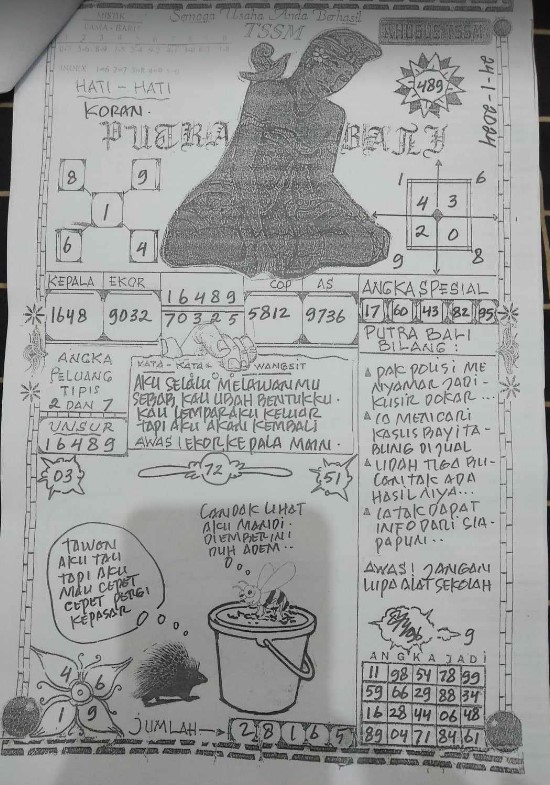 MISTIK
LAMA + BARU
INDEX
Semoga Usaha Anda Berhasil
TSSM
KHUSUS TSSM
HATI - HATI
KORAN.
489
24-1-2024
PUTRA BALI
8 9
1
6 4
1 6
4 3
2 0
9 8
KEPALA EKOR COP AS
1648 9032 16489 5812 9736
70325
ANGKA SPESIAL
17 60 43 82 95
ANGKA
PELUANG
TIPIS
2 DAN 7
UNSUR
16489
KATA - KATA WANGSIT
AKU SELALU MELAWANMU
SEBAB KAU UBAH BENTUKKU.
KAU LEMPAR AKU KELUAR
TAPI AKU AKAN KEMBALI
AWAS! EKOR KEPALA MAIN.
PUTRA BALI
BILANG :
PAK POLISI ME
NYAMAR JADI-
KUSIR DOKAR...
IA MENCARI
KASUS BAYI TA-
BUNG DI JUAL
UDAH TIGA BU-
LAN TAK ADA
HASILNYA...
IA TAK DAPAT
INFO DARI SIA-
PAPUN..
AWAS! JANGAN
LUPA ALAT SEKOLAH
03 72 51
TAWON
AKU TAU
TAPI AKU
MAU CEPET
CEPET PERGI
KEPASAR
CANDAK LIHAT
AKU MANDI.
DI EMBER INI
DUH ADEM..
9
4 6
1 9
JUMLAH → 2 8 1 6 5
ANGKA JADI
11 98 54 78 99
59 66 29 88 34
16 28 44 06 48
89 04 71 84 61